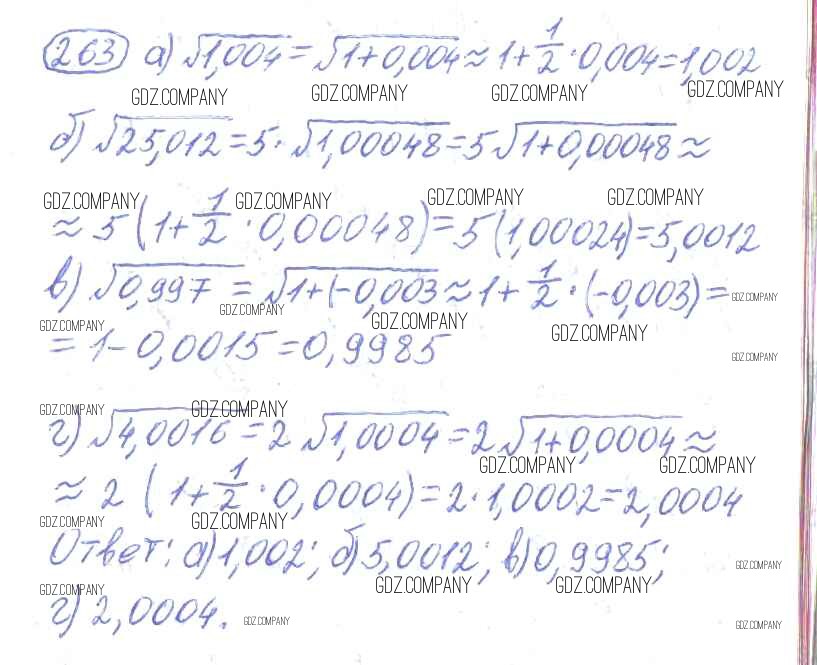 263 а) √1,004 = √1+0,004 ≈ 1+1/2·0,004=1,002
GDZ.COMPANY GDZ.COMPANY GDZ.COMPANY GDZ.COMPANY
б) √25,012 = 5·√1,00048 = 5√1+0,00048 ≈
GDZ.COMPANY GDZ.COMPANY GDZ.COMPANY GDZ.COMPANY
≈ 5 (1+1/2·0,00048)=5(1,00024)=5,0012
в) √0,997 = √1+(-0,003 ≈ 1+1/2·(-0,003)=
GDZ.COMPANY GDZ.COMPANY
GDZ.COMPANY GDZ.COMPANY GDZ.COMPANY
= 1-0,0015=0,9985
GDZ.COMPANY
GDZ.COMPANY GDZ.COMPANY
г) √4,0016 = 2 √1,0004 = 2 √1+0,0004 ≈
GDZ.COMPANY GDZ.COMPANY
≈ 2 (1+1/2·0,0004)=2·1,0002=2,0004
GDZ.COMPANY GDZ.COMPANY
Ответ: а)1,002; б)5,0012; в)0,9985;
GDZ.COMPANY
GDZ.COMPANY GDZ.COMPANY GDZ.COMPANY
г) 2,0004.
GDZ.COMPANY GDZ.COMPANY